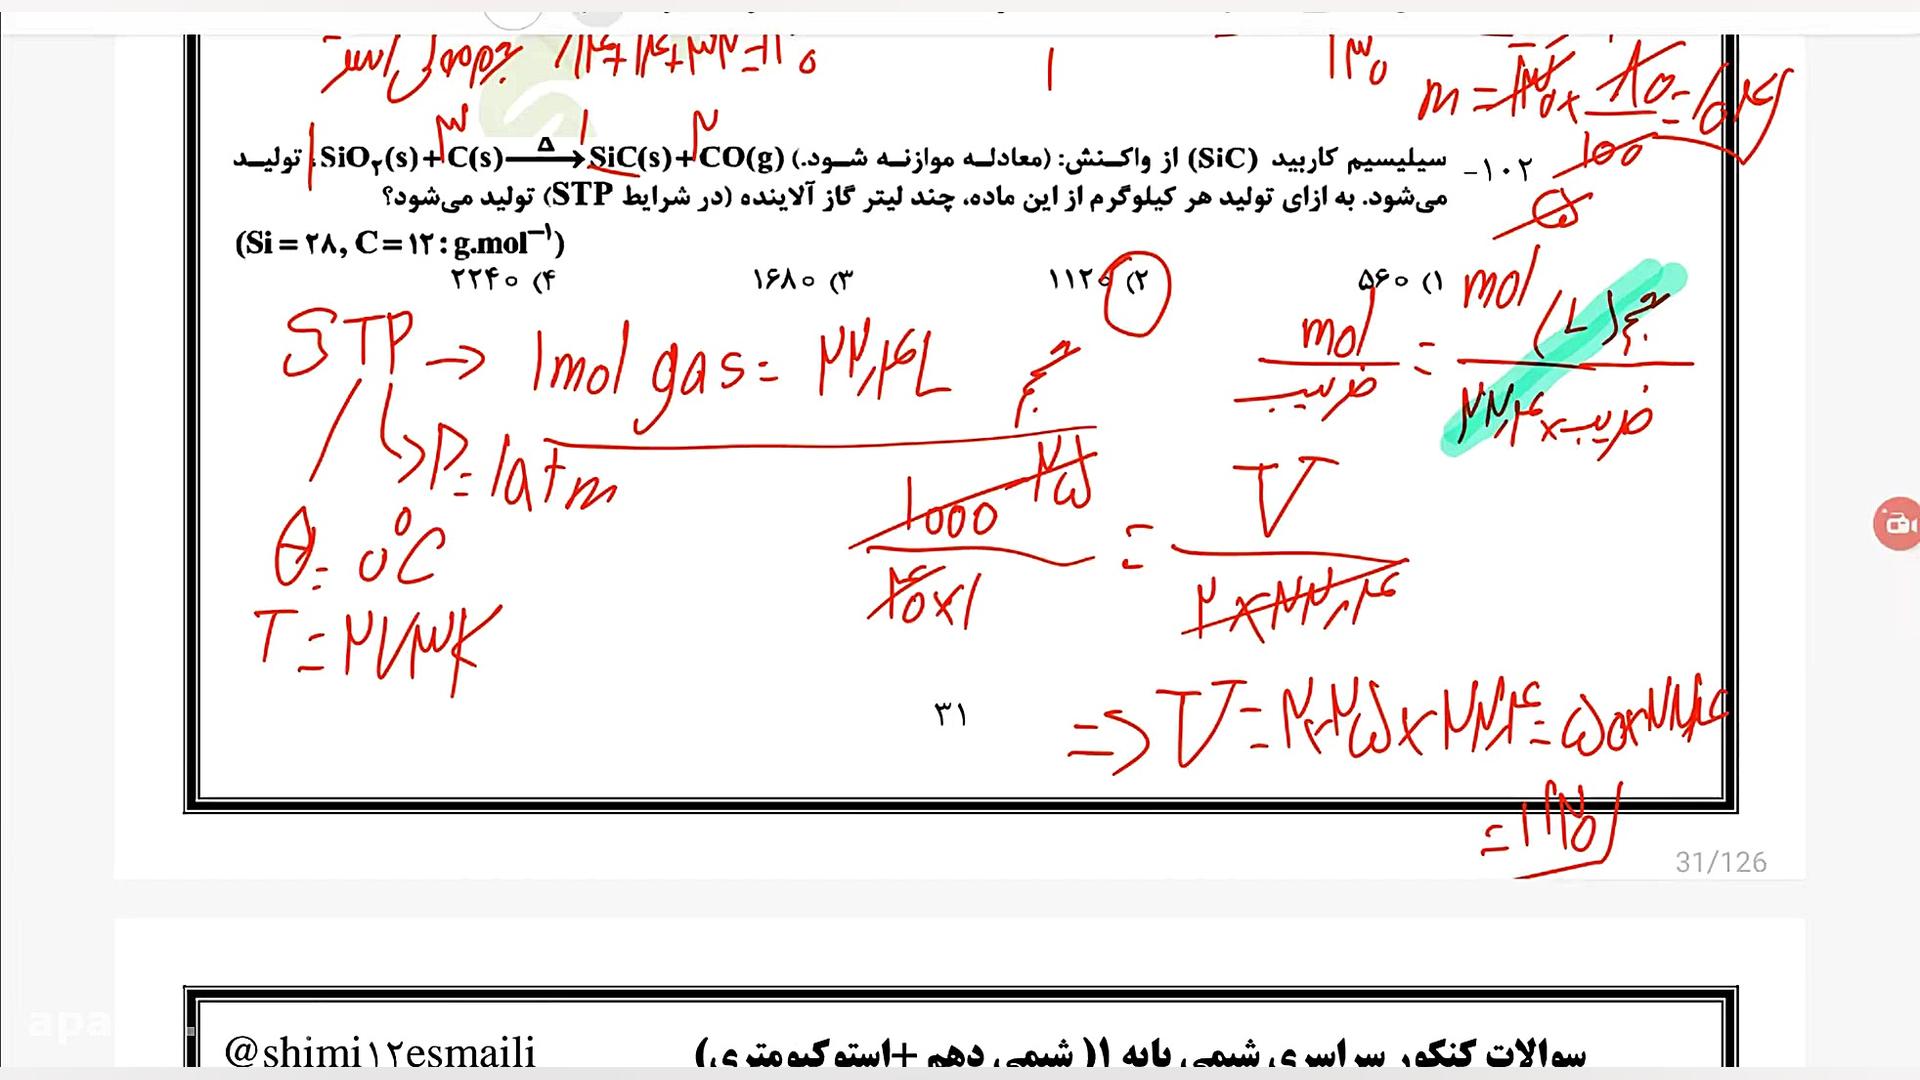 m = ۱۳۰ × ۸۰ = ۱۰۴g
۱۰۰
۱ ۱۳۰
۱۰۲- سیلیسیم کاربید (SiC) از واکنش: (معادله موازنه شود.) SiO₂(s)+C(s) —Δ→ SiC(s)+CO(g) تولید
۱ ۳ ۱ ۲
می‌شود. به ازای تولید هر کیلوگرم از این ماده، چند لیتر گاز آلاینده (در شرایط STP) تولید می‌شود؟
(Si = ۲۸, C = ۱۲ : g.mol⁻¹)
۱) ۵۶۰ ۲) ۱۱۲۰ ۳) ۱۶۸۰ ۴) ۲۲۴۰
STP → 1mol gas = ۲۲,۴L
P = 1atm
θ = 0°C
T = ۲۷۳K
mol
mol / ضریب = حجم (L) / ۲۲,۴ × ضریب
جرم
۲۵
1000 / ۴۰×۱ = V / ۲×۲۲,۴
=> V = ۲×۲۵×۲۲,۴ = ۵۰×۲۲,۴
= ۱۱۲۰
۳۱
31/126
@shimi۱۲esmaili
سوالات کنکور سراسری شیمی پایه ۱( شیمی دهم +استوکیومتری)